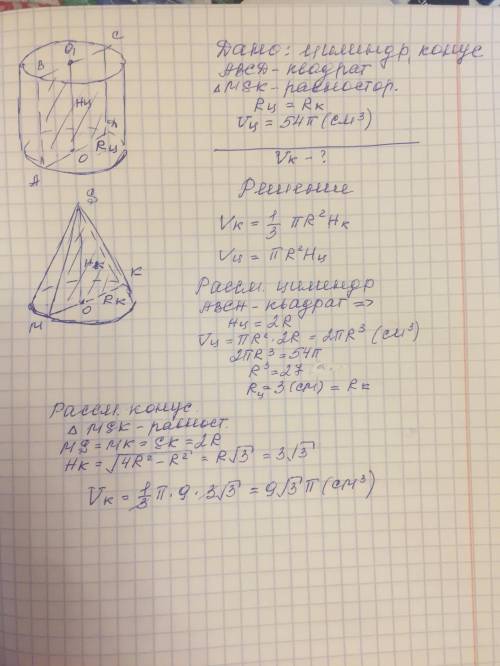 C
O₁
B
Hц
Д
Rц
O
A
S
Hк
K
Rк
O
M
Дано: цилиндр, конус
ABCD - квадрат
△MSK - равностор.
Rц = Rк
Vц = 54π (см³)
Vк - ?
Решение
Vк = 1/3 πR²Hк
Vц = πR²Hц
Рассм. цилиндр
ABCД - квадрат =>
Hц = 2R
Vц = πR²·2R = 2πR³ (см³)
2πR³ = 54π
R³ = 27
Rц = 3 (см) = Rк
Рассм. конус
△ MSK - равност.
MS = MK = SK = 2R
Hк = √4R² - R² = R√3 = 3√3
Vк = 1/3 π · 9 · 3√3 = 9√3 π (см³)